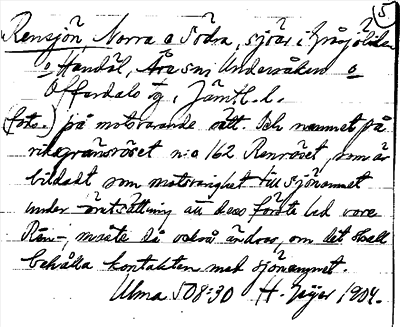 5
Rensjön, Norra o Södra, sjöar i
o Handöl, Åre sn, Undersåkers o
Offerdals tg, Jämtl. l.
(forts.) på motsvarande sätt. Och namnet på
riksgränsröset n:o 162 Renröset, som är
bildadt som motsvarighet till sjönamnet
under förutsättning att dess förste led vore
Ren-, måste då också ändras, om det skall
behålla kontakten med sjönamnet.
Ulma 508:30 H. Geijer 1904.